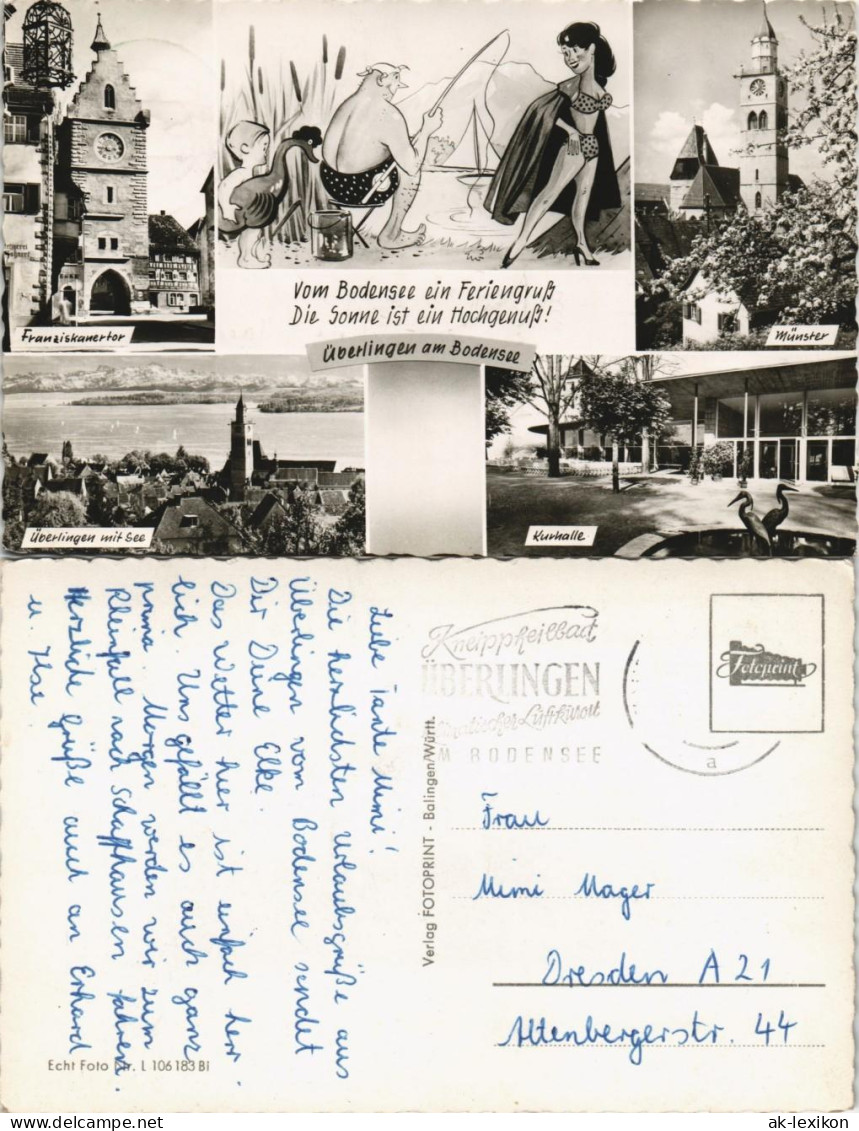 Franziskanertor
Vom Bodensee ein Feriengruß
Die Sonne ist ein Hochgenuß!
Überlingen am Bodensee
Münster
Überlingen mit See
Kurhalle
Liebe Tante Mimi!
Die herrlichsten Urlaubsgrüße aus
Überlingen vom Bodensee sendet
Dir Deine Elke.
Das Wetter hier ist einfach herr-
lich. Uns gefällt es auch ganz
prima. Morgen werden wir zum
Rheinfall nach Schaffhausen fahren.
Herzliche Grüße auch an Erhard
u. Ilse
Echt Foto Nr. L 106183 Bi
Verlag FOTOPRINT - Balingen/Württ.
Kneippheilbad
ÜBERLINGEN
Luftkurort
AM BODENSEE
a
Fotoprint
Frau
Mimi Mager
Dresden A 21
Altenbergerstr. 44
delcampe.net
ak-lexikon